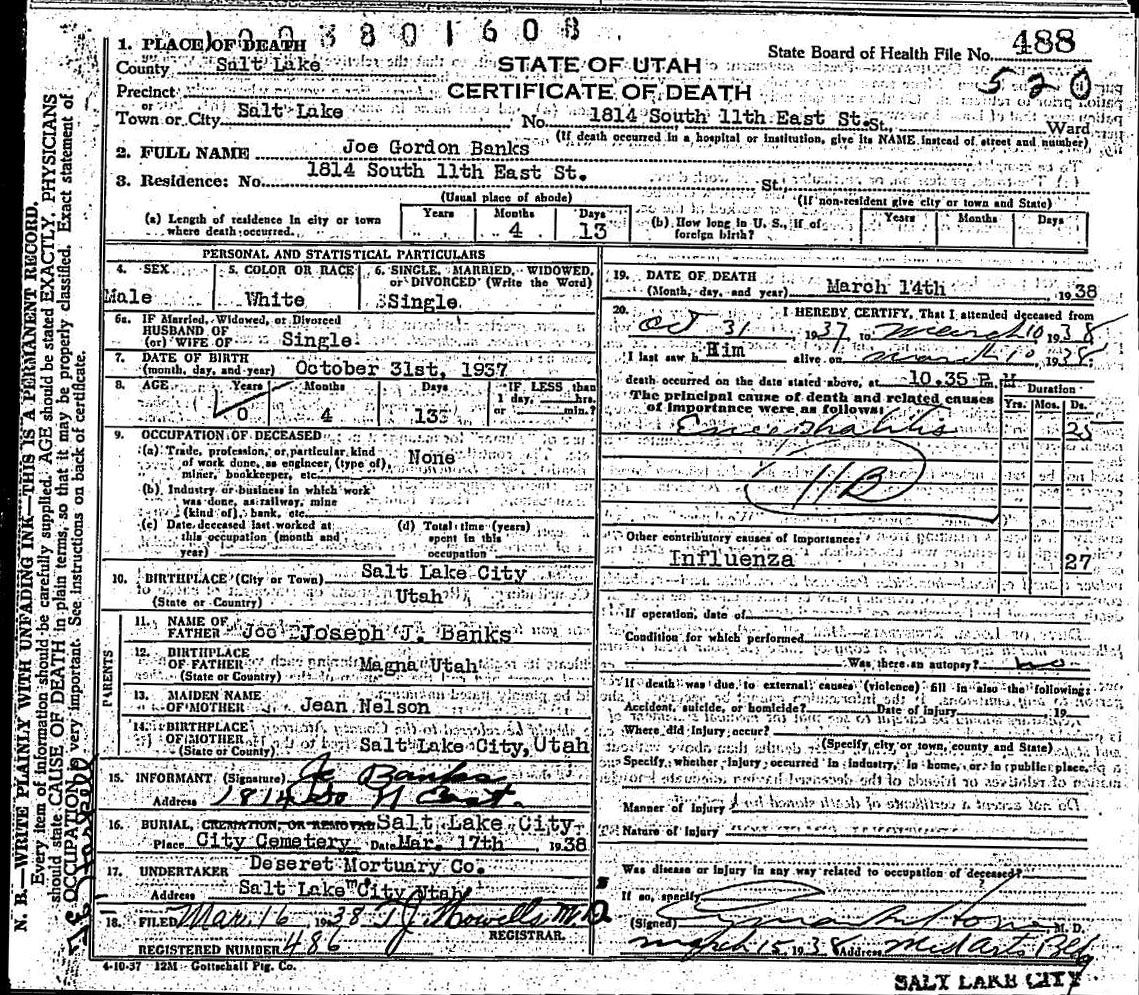 1003801601608
1. PLACE OF DEATH
County Salt Lake
State Board of Health File No. 488
STATE OF UTAH
520
Precinct
CERTIFICATE OF DEATH
or
Town or City Salt Lake No. 1814 South 11th East St. St. Ward
(If death occurred in a hospital or institution, give its NAME instead of street and number)
2. FULL NAME Joe Gordon Banks
3. Residence: No. 1814 South 11th East St. St.,
(Usual place of abode) (If non-resident give city or town and State)
(a) Length of residence in city or town where death occurred. Years Months 4 Days 13
(b) How long in U. S., if of foreign birth? Years Months Days
PERSONAL AND STATISTICAL PARTICULARS
4. SEX Male
5. COLOR OR RACE White
6. SINGLE, MARRIED, WIDOWED, or DIVORCED (Write the Word) Single
6a. IF Married, Widowed, or Divorced
HUSBAND OF
(or) WIFE OF Single
7. DATE OF BIRTH
(month, day, and year) October 31st, 1937
8. AGE Years 0 Months 4 Days 13 IF LESS than 1 day, hrs. or min.?
9. OCCUPATION OF DECEASED
(a) Trade, profession, or particular kind
of work done, as engineer, (type of), None
miner, bookkeeper, etc.
(b) Industry or business in which work
was done, as railway, mine
(kind of), bank, etc.
(c) Date deceased last worked at
this occupation (month and
year)
(d) Total time (years)
spent in this
occupation
10. BIRTHPLACE (City or Town) Salt Lake City
(State or Country) Utah
PARENTS
11. NAME OF
FATHER Joe Joseph J. Banks
12. BIRTHPLACE
OF FATHER Magna Utah
(State or Country)
13. MAIDEN NAME
OF MOTHER Jean Nelson
14. BIRTHPLACE
OF MOTHER Salt Lake City, Utah
(State or County)
15. INFORMANT (Signature) Joe Banks
Address 1814 So 11 East.
16. BURIAL, CREMATION, OR REMOVAL Salt Lake City
Place City Cemetery Date Mar. 17th 1938
17. UNDERTAKER Deseret Mortuary Co.
Address Salt Lake City Utah
18. FILED Mar. 16 1938 T J Howells M.D.
REGISTRAR.
REGISTERED NUMBER 486
4-10-37 12M Gottschall Ptg. Co.
19. DATE OF DEATH
(Month, day, and year) March 14th 1938
20. I HEREBY CERTIFY, That I attended deceased from
Oct 31, 1937 to March 10 1938
I last saw h Him alive on March 10, 1938
death occurred on the date stated above, at 10.35 P. M
The principal cause of death and related causes
of importance were as follows:
Duration
Yrs. Mos. Ds.
Encephalitis 25
Other contributory causes of importance:
Influenza 27
If operation, date of
Condition for which performed
Was there an autopsy? no
If death was due to external causes (violence) fill in also the following:
Accident, suicide, or homicide? Date of injury 19
Where did injury occur?
(Specify city or town, county and State)
Specify whether injury occurred in industry, in home, or in public place.
Manner of injury
Nature of injury
Was disease or injury in any way related to occupation of deceased?
If so, specify
(Signed) M. D.
March 15, 1938 Address Med Arts Bldg
SALT LAKE CITY
N. B.—WRITE PLAINLY WITH UNFADING INK—THIS IS A PERMANENT RECORD.
Every item of information should be carefully supplied. AGE should be stated EXACTLY. PHYSICIANS
should state CAUSE OF DEATH in plain terms, so that it may be properly classified. Exact statement of
OCCUPATION very important. See instructions on back of certificate.